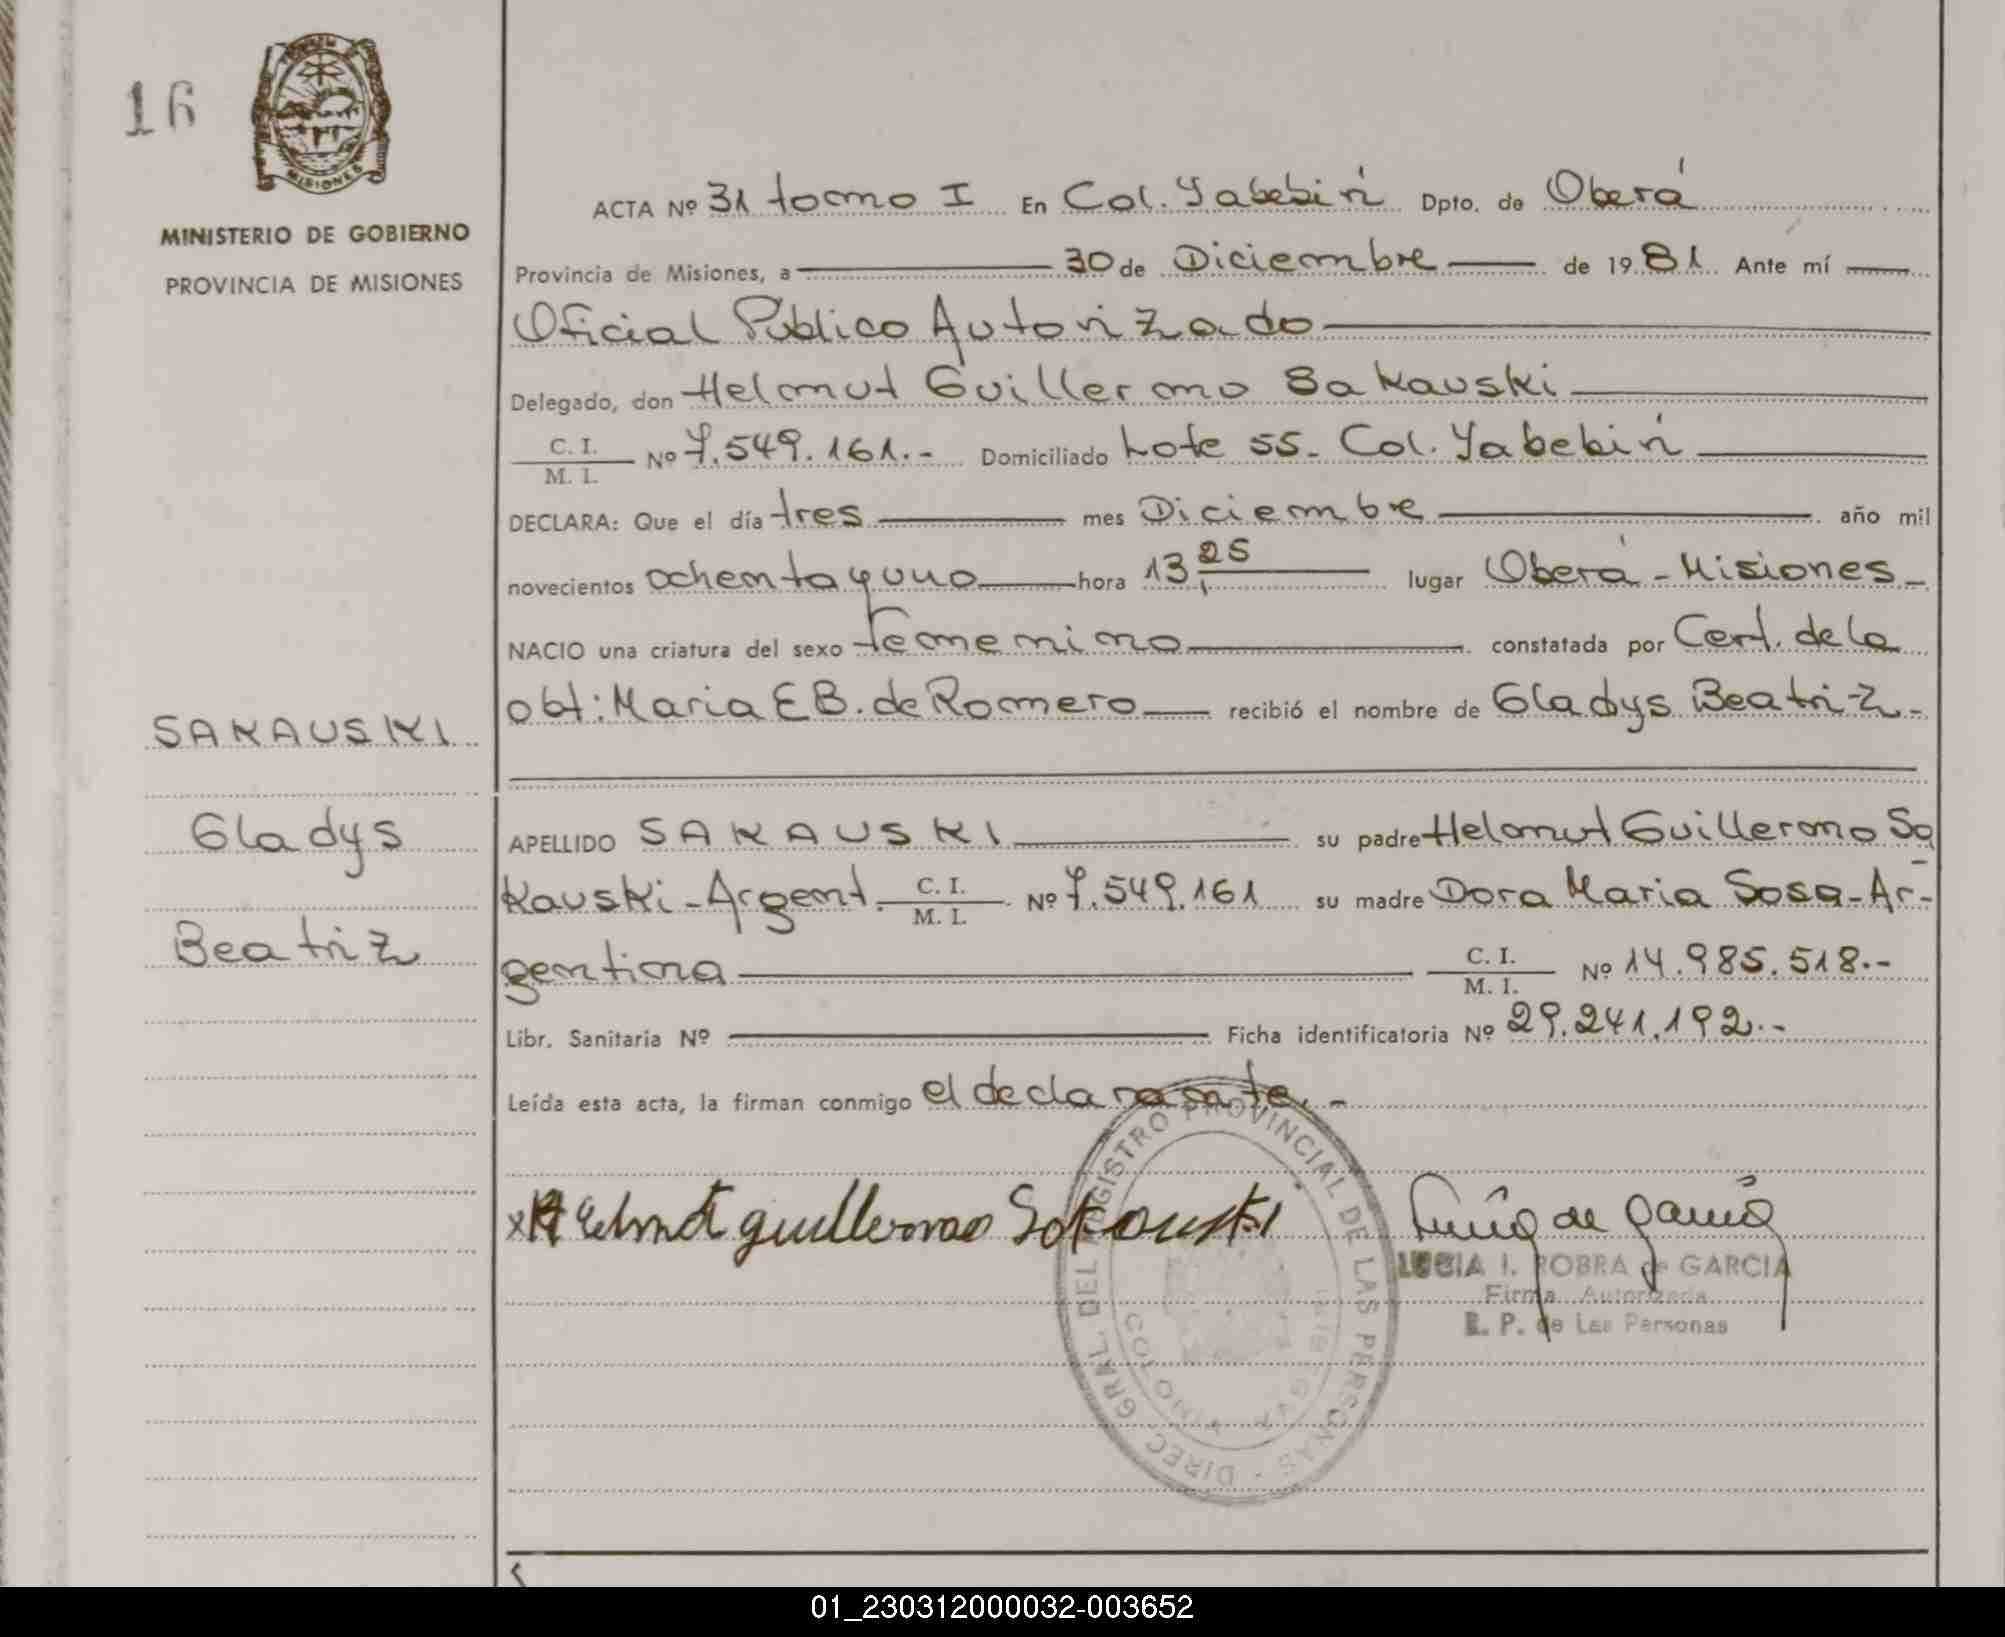 16
MISIONES
MINISTERIO DE GOBIERNO
PROVINCIA DE MISIONES
SAKAUSKI
Gladys
Beatriz
ACTA Nº 31 tomo I En Col. Yabebirí Dpto. de Oberá
Provincia de Misiones, a 30 de Diciembre de 1981 Ante mí
Oficial Publico Autorizado
Delegado, don Helmut Guillermo Sakauski
C. I.
M. I.
Nº 7.549.161.- Domiciliado Lote 55- Col. Yabebirí
DECLARA: Que el día tres mes Diciembre año mil
novecientos ochenta y uno hora 13 25 lugar Oberá - Misiones -
NACIO una criatura del sexo femenino constatada por Cert. de la
obt: Maria E B. de Romero recibió el nombre de Gladys Beatriz.-
APELLIDO SAKAUSKI su padre Helmut Guillermo Sa
kauski - Argent. C. I. M. I. Nº 7.549.161 su madre Dora Maria Sosa - Ar-
gentina C. I. M. I. Nº 14.985.518.-
Libr. Sanitaria Nº Ficha identificatoria Nº 29.241.192.-
Leída esta acta, la firman conmigo el declarante.-
x Helmut guillermo Sakauski
LUCIA I. ROBRA de GARCIA
Firma Autorizada
R. P. de Las Personas
DIREC. GRAL. DEL REGISTRO PROVINCIAL DE LAS PERSONAS
01_230312000032-003652